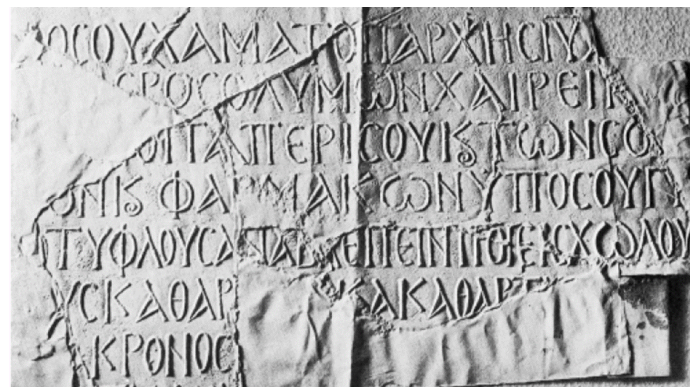 ΡΟϹΟΥΧΑΜΑΤΟΠΑΡΧΗϹΙΥ
ΕΡΟϹΟΛΥΜΩΝΧΑΙΡΕΙΝ
ΟΙΤΑΠΕΡΙϹΟΥϏΤΩΝϹΩ
ΩΝϏΦΑΡΜΑΚΩΝΥΠΟϹΟΥΓΙ
ΤΥΦΛΟΥϹΑΝΑΒΛΕΠΕΙΝΠΟΙΕΙϹΧΩΛΟΥ
ΥϹΚΑΘΑΡ ΚΑΚΑΘΑΡΤ
ΚΡΟΝΟϹ